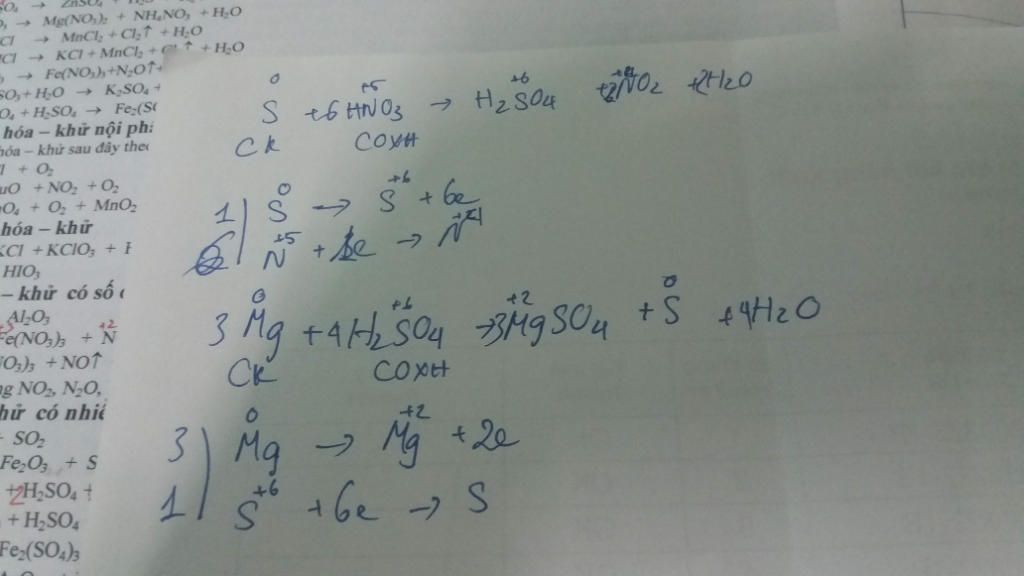 SO₄ → ZnSO₄ +
→ Mg(NO₃)₂ + NH₄NO₃ + H₂O
Cl → MnCl₂ + Cl₂↑ + H₂O
Cl → KCl + MnCl₂ + Cl₂↑ + H₂O
→ Fe(NO₃)₃ + N₂O↑ +
SO₃ + H₂O → K₂SO₄ +
O₄ + H₂SO₄ → Fe₂(SO
hóa – khử nội phâ
hóa – khử sau đây theo
+ O₂
uO + NO₂ + O₂
nO₄ + O₂ + MnO₂
hóa – khử
KCl + KClO₃ +
HIO₃
– khử có số
Al₂O₃
Fe(NO₃)₃ + N +2
NO₃)₃ + NO↑
ng NO₂, N₂O,
hử có nhiề
+ SO₂
Fe₂O₃ + S
+ 2H₂SO₄ +
+ H₂SO₄
Fe₂(SO₄)₃
0 +5 +6 +4
S + 6HNO₃ → H₂SO₄ + NO₂ + 2H₂O
CK COXH
0 +6
1 | S → S + 6e
+5
N + 1e → N
0 +6 +2 0
3Mg + 4H₂SO₄ → 3MgSO₄ + S + 4H₂O
CK COXH
0 +2
3 | Mg → Mg + 2e
+6
1 | S + 6e → S